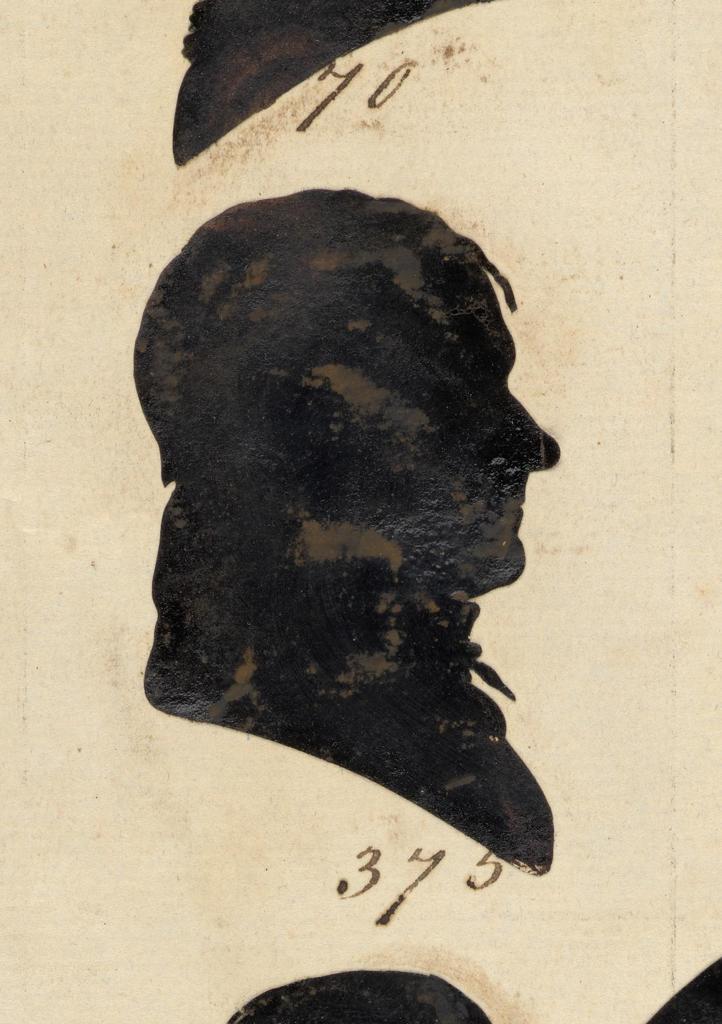 70
375